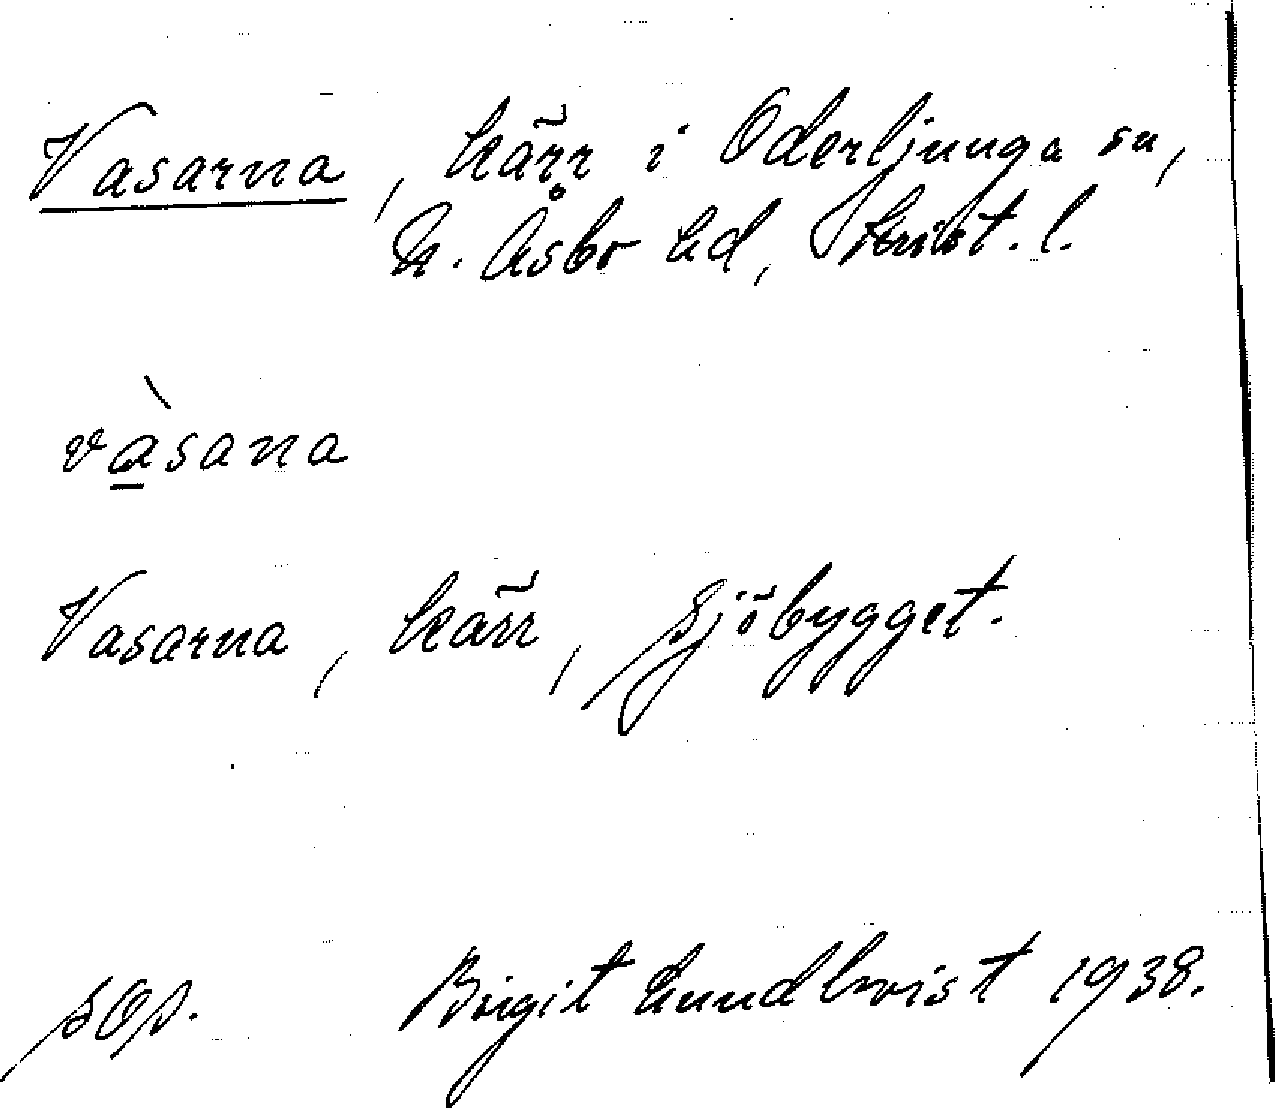 Vasarna, kärr i Oderljunga sn,
N. Åsbo hd, Krist. l.
vàsana
Vasarna, kärr, Sjöbygget.
Birgit Lundkvist 1938.